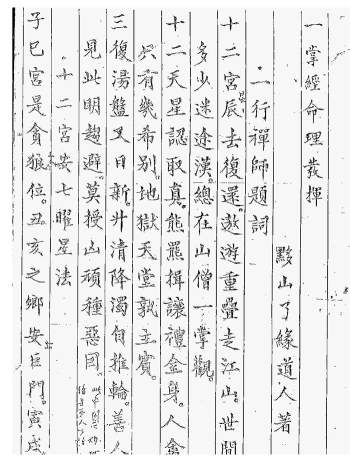 一掌經命理發揮
黟山了緣道人著
一行禪師題詞
十二宮辰去復還。遨遊重疊走江山。世間
多少迷途漢。總在山僧一掌觀。
十二天星認取真。熊羆揖讓禮金身。人禽
只有幾希別。地獄天堂孰主賓。
三復湯盤又日新。升清降濁自推輪。善人
見此明趨避。莫授山頑種惡因。
十二宮安七曜星法
子巳宮是貪狼位。丑亥之鄉安巨門。寅戌